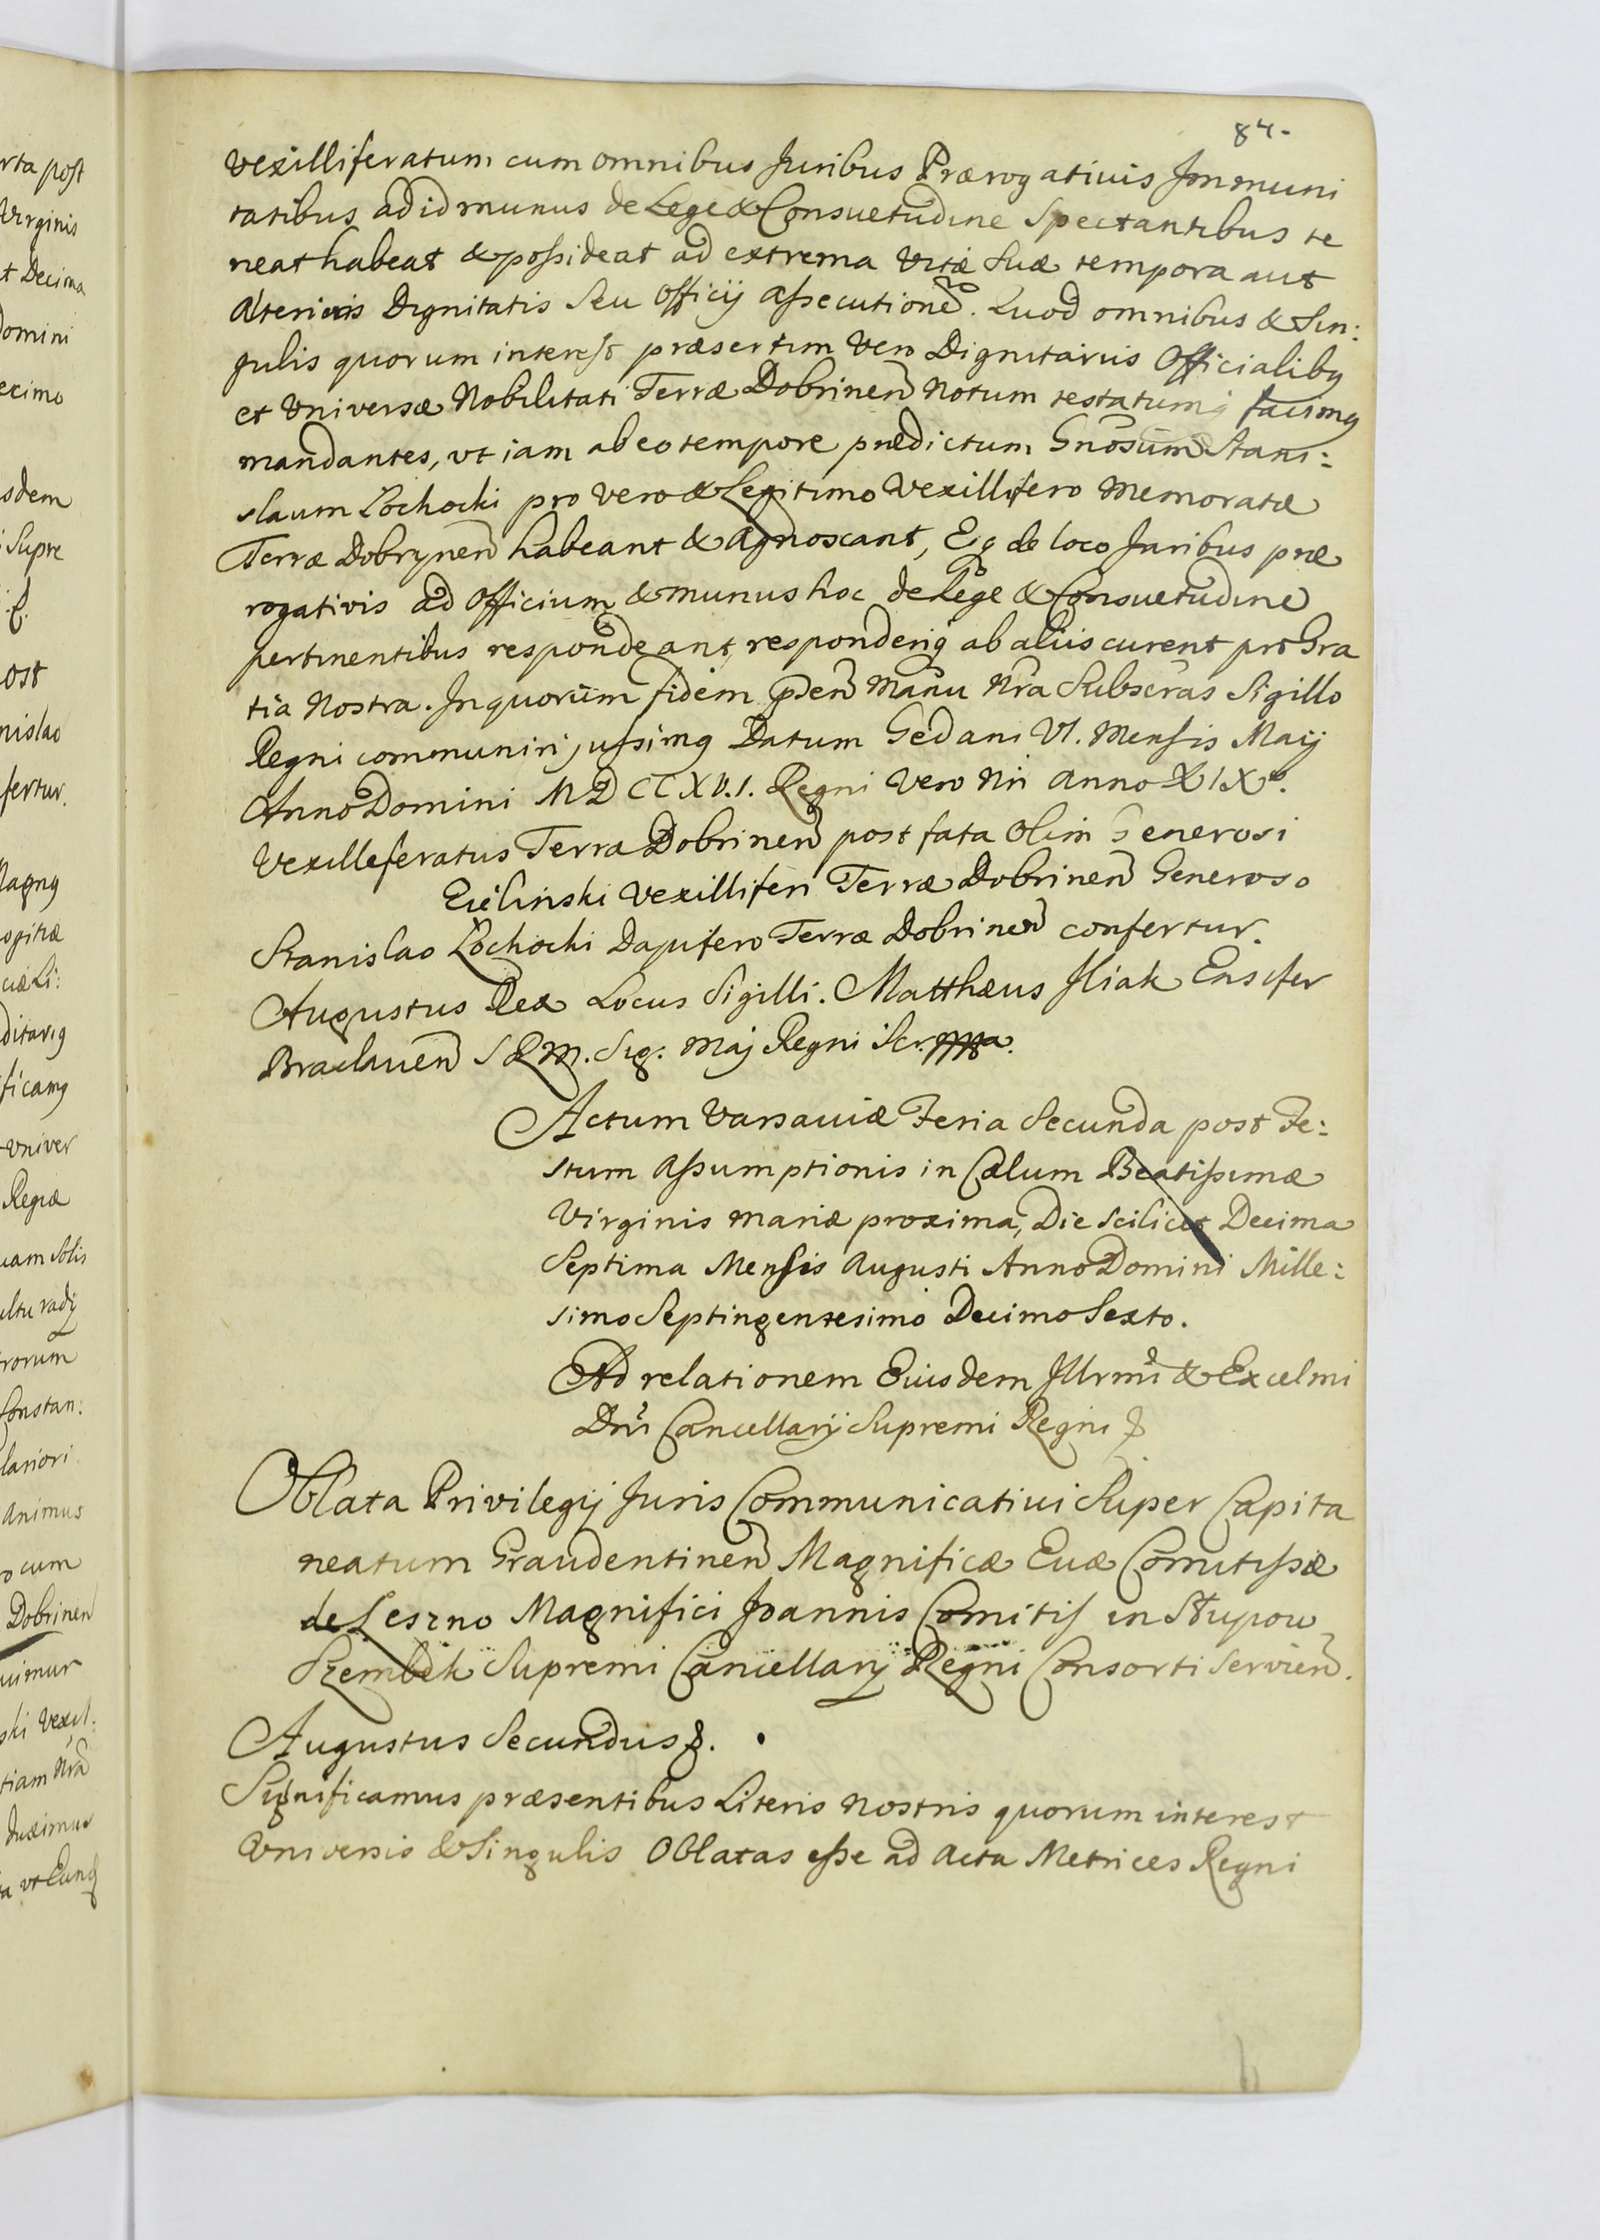 84.
Vexilliferatum cum omnibus Juribus Prærogativis Jmmuni
tatibus ad id munus de Lege & Consuetudine Spectantibus te
neat habeat & possideat ad extrema Vitæ Suæ tempora aut
alterius Dignitatis Seu Officij assecutionē. Quod omnibus & Sin:
gulis quorum interest præsertim Vero Dignitariis Officialibꝰ
et Universæ Nobilitati Terræ Dobrinen̄ Notum testatumq̨ facimꝰ
mandantes, ut iam ab eo tempore prædictum Gnosum Stani:
slaum Łochocki pro Vero & Legitimo Vexillifero Memoratæ
Terræ Dobrynen̄ habeant & agnoscant, Eq̨ de loco Juribus præ
rogativis ad Officium & munus hoc de Lege & Consuetudine
pertinentibus respondeant, responderiq̨ ab aliis curent pro Gra
tia Nostra. Jn quorum fidem p̄sen̄ Manu Nrā Subscrās Sigillo
Regni communiri jussimꝰ Datum Gedani VI. Mensis Maij
Anno Domini MDCCXVI. Regni Vero Nri anno XIX°.
Vexilleferatus Terra Dobrinen̄ post fata Olim Generosi
Zielinski Vexilliferi Terræ Dobrinen̄ Generoso
Stanislao Łochocki Dapifero Terræ Dobrinen̄ confertur.
Augustus Rex Locus Sigilli. Matthæus Jliak Ensifer
Braclauen̄ S R M. Sig. Maj Regni Scr.
Actum Varsauiæ Feria Secunda post Fe:
stum Assumptionis in Cælum Beatissimæ
Virginis Mariæ proxima, Die Scilicet Decima
Septima Mensis Augusti Anno Domini Mille:
simo Septingentesimo Decimo Sexto.
Ad relationem Eiusdem Jllrmi & Excelmi
Dni Cancellarij Supremi Regni
Oblata Privilegij Juris Communicatiui Super Capita
neatum Graudentinen̄ Magnificæ Euæ Comitissæ
de Leszno Magnifici Joannis Comitis in Słupow
Szembek Supremi Cancellarij Regni Consorti Servien̄.
Augustus Secundus
Significamus præsentibus Literis Nostris quorum interest
Universis & Singulis Oblatas esse ad Acta Metrices Regni